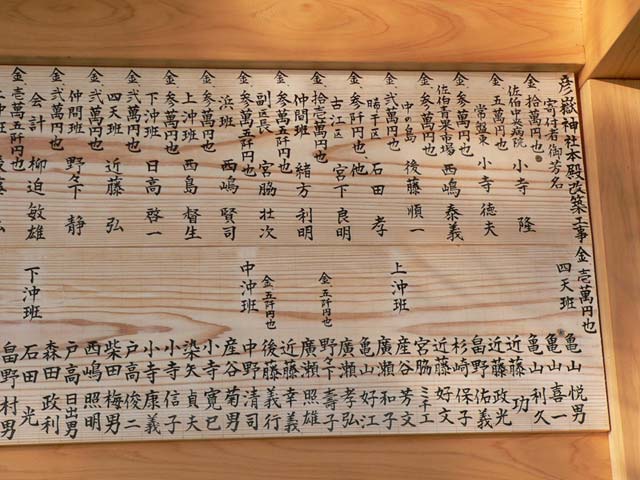 彦嶽神社本殿改築工事
宮寄付者御芳名
金 拾萬円也
佐伯中央病院 小寺 隆
金 五萬円也
常盤東 小寺 徳夫
金 参萬円也
佐伯青果市場 西嶋 泰義
金 参萬円也
中の島 後藤 順一
金 弐萬円也
石田 孝
金 参阡円、他
古江区 宮下 良明
金 拾壱萬円也
仲間班 緒方 利明
金 参萬五阡円也
副区長 宮脇 壮次
金 参萬五阡円也
浜班 西嶋 賢司
金 参萬円也
上沖班 西島 督生
金 参萬円也
下沖班 日高 啓一
金 弐萬円也
四天班 近藤 弘
金 弐萬円也
仲間班 野々下 静
会計 柳迫 敏雄
金 壱萬五阡円也
金 壱萬円也
四天班
亀山 悦男
亀山 喜一
亀山 利久
近藤 功
近藤 政光
畠野 佑義
杉崎 保子
近藤 好文
宮脇 ミチエ
上沖班
産谷 芳文
廣瀬 和子
亀山 好江
廣瀬 孝弘
野々下 壽子
金 五阡円也
廣瀬 照雄
近藤 幸義
後藤 義行
金 五阡円也
中沖班
中野 清司
産谷 菊男
小寺 寛已
染矢 貞夫
小寺 信子
小寺 康義
戸高 俊二
柴田 梅男
西嶋 照明
戸高 日出男
森田 政利
下沖班
石田 光
畠野 村男